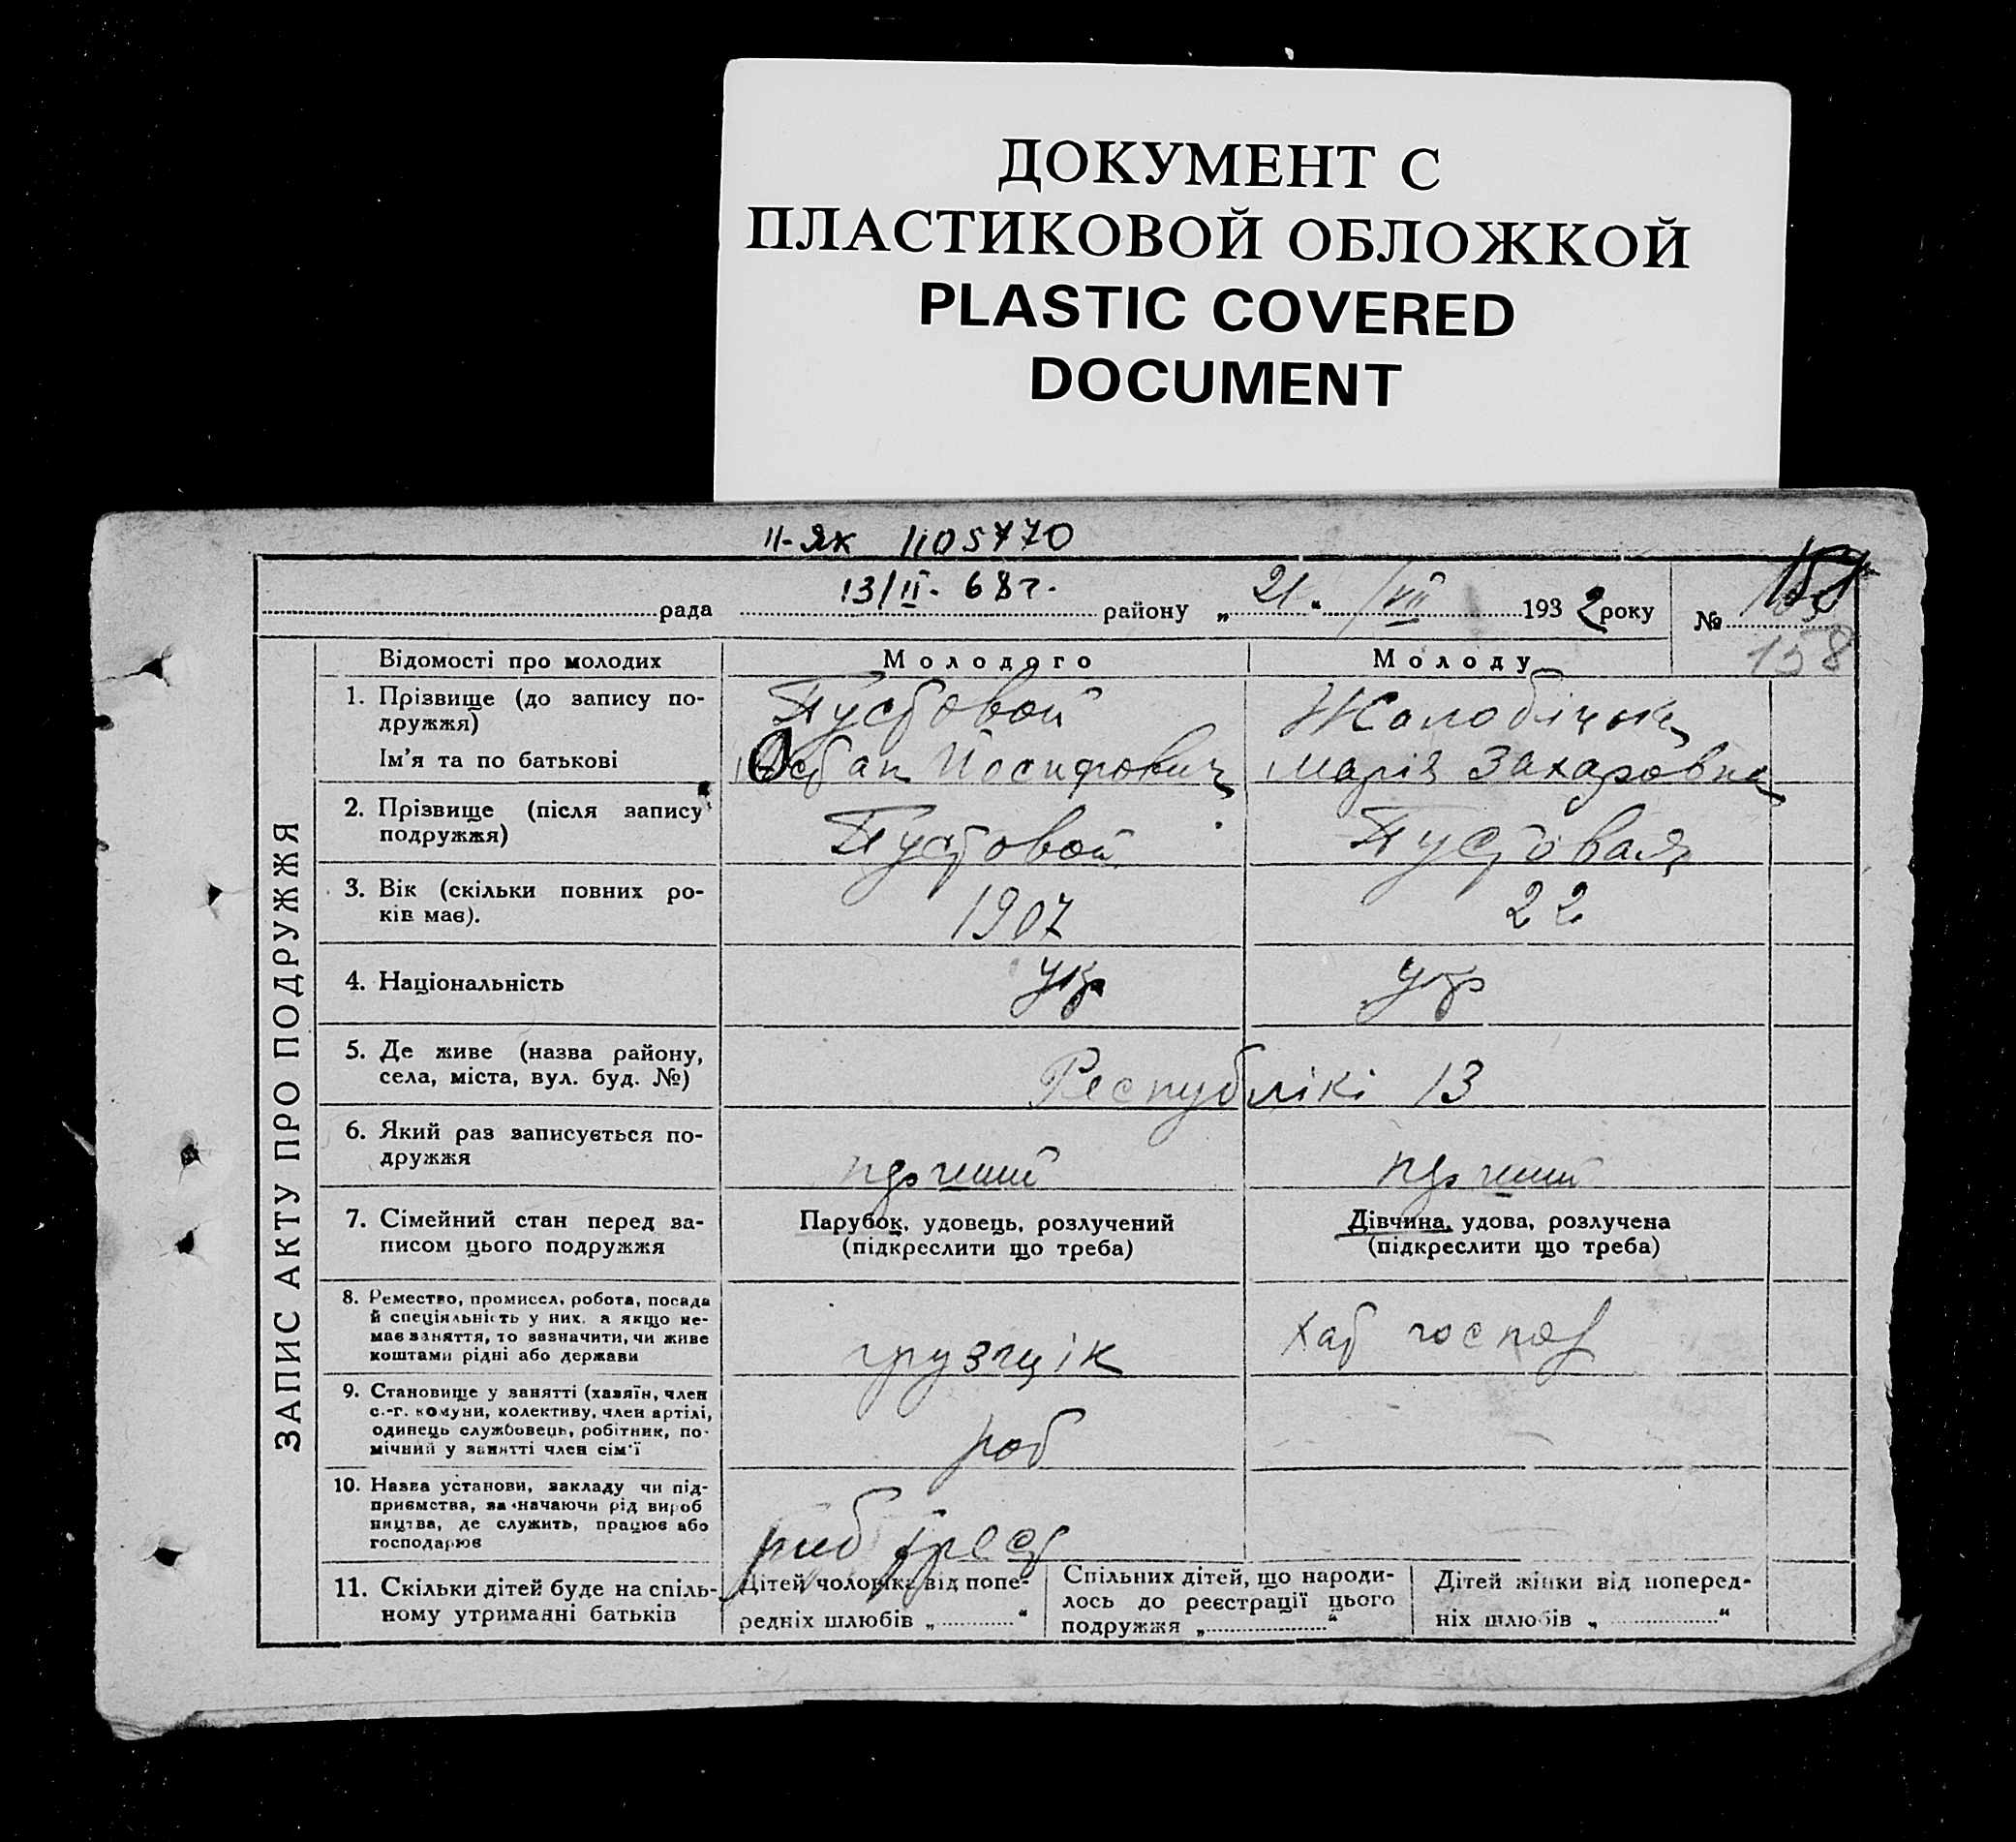 ДОКУМЕНТ С
ПЛАСТИКОВОЙ ОБЛОЖКОЙ
PLASTIC COVERED
DOCUMENT
II-ЯК 1105770
рада 13/II- 68 г. району „ 21 “ VII 1932 року № 158
ЗАПИС АКТУ ПРО ПОДРУЖЖЯ
Відомості про молодих Молодого Молоду
1. Прізвище (до запису по-
дружжя) Пустовой
Ім'я та по батькові Остап Йосипович Марія Захаровна
2. Прізвище (після запису
подружжя) Пустовой Пустовая
3. Вік (скільки повних ро-
ків має). 1907 22
4. Національність укр укр
5. Де живе (назва району,
села, міста, вул. буд. №) Республікі 13
6. Який раз записується по-
дружжя перший перший
7. Сімейний стан перед за- Парубок, удовець, розлучений Дівчина, удова, розлучена
писом цього подружжя (підкреслити що треба) (підкреслити що треба)
8. Ремество, промисел, робота, посада
й спеціяльність у них, а якщо не-
має заняття, то зазначити, чи живе
коштами рідні або держави грузчік хат господ
9. Становище у занятті (хазяїн, член
с.-г. комуни, колективу, член артілі,
одинець службовець, робітник, по-
мічний у занятті член сім'ї роб
10. Назва установи, закладу чи під-
приємства, зазначаючи рід вироб
ництва, де служить, працює або
господарює риб трест
11. Скільки дітей буде на спіль-
ному утриманні батьків
Дітей чоловіка від попе-
редніх шлюбів „ “
Спільних дітей, що народи-
лось до реєстрації цього
подружжя „ “
Дітей жінки від поперед-
ніх шлюбів „ “